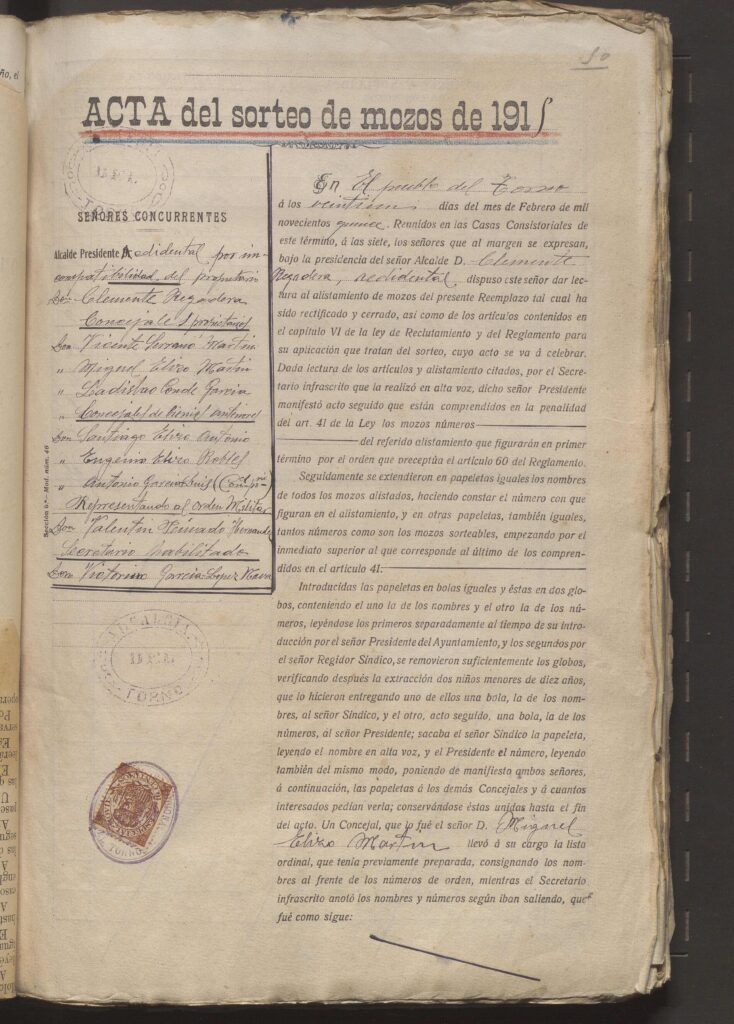 ño, el
50
ACTA del sorteo de mozos de 1915
ALCALDIA
TORNO
SEÑORES CONCURRENTES
Alcalde Presidente Acdidental por in-
compatibilidad del propietario
Don Clemente Regadera
Concejales propietarios
Don Vicente Serrano Martin
" Miguel Elizo Martin
" Ladislao Conde Garcia
Concejales de bienios anteriores
Don Santiago Elizo Antonio
" Eugenio Elizo Robles
" Antonio Garcia
Representando al orden Militar
Don Valentin Hernandez
Secretario habilitado
Don Victorino Garcia Lopez
Sección 6.ª—Mod. núm. 46
ALCALDIA
TORNO
TORNO
En El pueblo del Torno
á los veintiun días del mes de Febrero de mil
novecientos quince. Reunidos en las Casas Consistoriales de
este término, á las siete, los señores que al margen se expresan,
bajo la presidencia del señor Alcalde D. Clemente
Regadera, acdidental, dispuso este señor dar lec-
tura al alistamiento de mozos del presente Reemplazo tal cual ha
sido rectificado y cerrado, así como de los artículos contenidos en
el capítulo VI de la ley de Reclutamiento y del Reglamento para
su apicación que tratan del sorteo, cuyo acto se va á celebrar.
Dada lectura de los artículos y alistamiento citados, por el Secre-
tario infrascrito que la realizó en alta voz, dicho señor Presidente
manifestó acto seguido que están comprendidos en la penalidad
del art. 41 de la Ley los mozos números
del referido alistamiento que figurarán en primer
término por el orden que preceptúa el artículo 60 del Reglamento.
Seguidamente se extendieron en papeletas iguales los nombres
de todos los mozos alistados, haciendo constar el número con que
figuran en el alistamiento, y en otras papeletas, también iguales,
tantos números como son los mozos sorteables, empezando por el
inmediato superior al que corresponde al último de los compren-
didos en el artículo 41.
Introducidas las papeletas en bolas iguales y éstas en dos glo-
bos, conteniendo el uno la de los nombres y el otro la de los nú-
meros, leyéndose los primeros separadamente al tiempo de su intro-
ducción por el señor Presidente del Ayuntamiento, y los segundos por
el señor Regidor Síndico, se removieron suficientemente los globos,
verificando después la extracción dos niños menores de diez años,
que lo hicieron entregando uno de ellos una bola, la de los nom-
bres, al señor Síndico, y el otro, acto seguido, una bola, la de los
números, ál señor Presidente; sacaba el señor Síndico la papeleta,
leyendo el nombre en alta voz, y el Presidente el número, leyendo
también del mismo modo, poniendo de manifiesta ambos señores,
á continuación, las papeletas á los demás Concejales y á cuantos
interesados pedían verla; conservándose éstas unidas hasta el fin
del acto. Un Concejal, que lo fué el señor D. Miguel
Elizo Martin llevó á su cargo la lista
ordinal, que tenía previamente preparada, consignando los nom-
bres al frente de los números de orden, mientras el Secretario
infrascrito anotó los nombres y números según iban saliendo, que
fué como sigue: